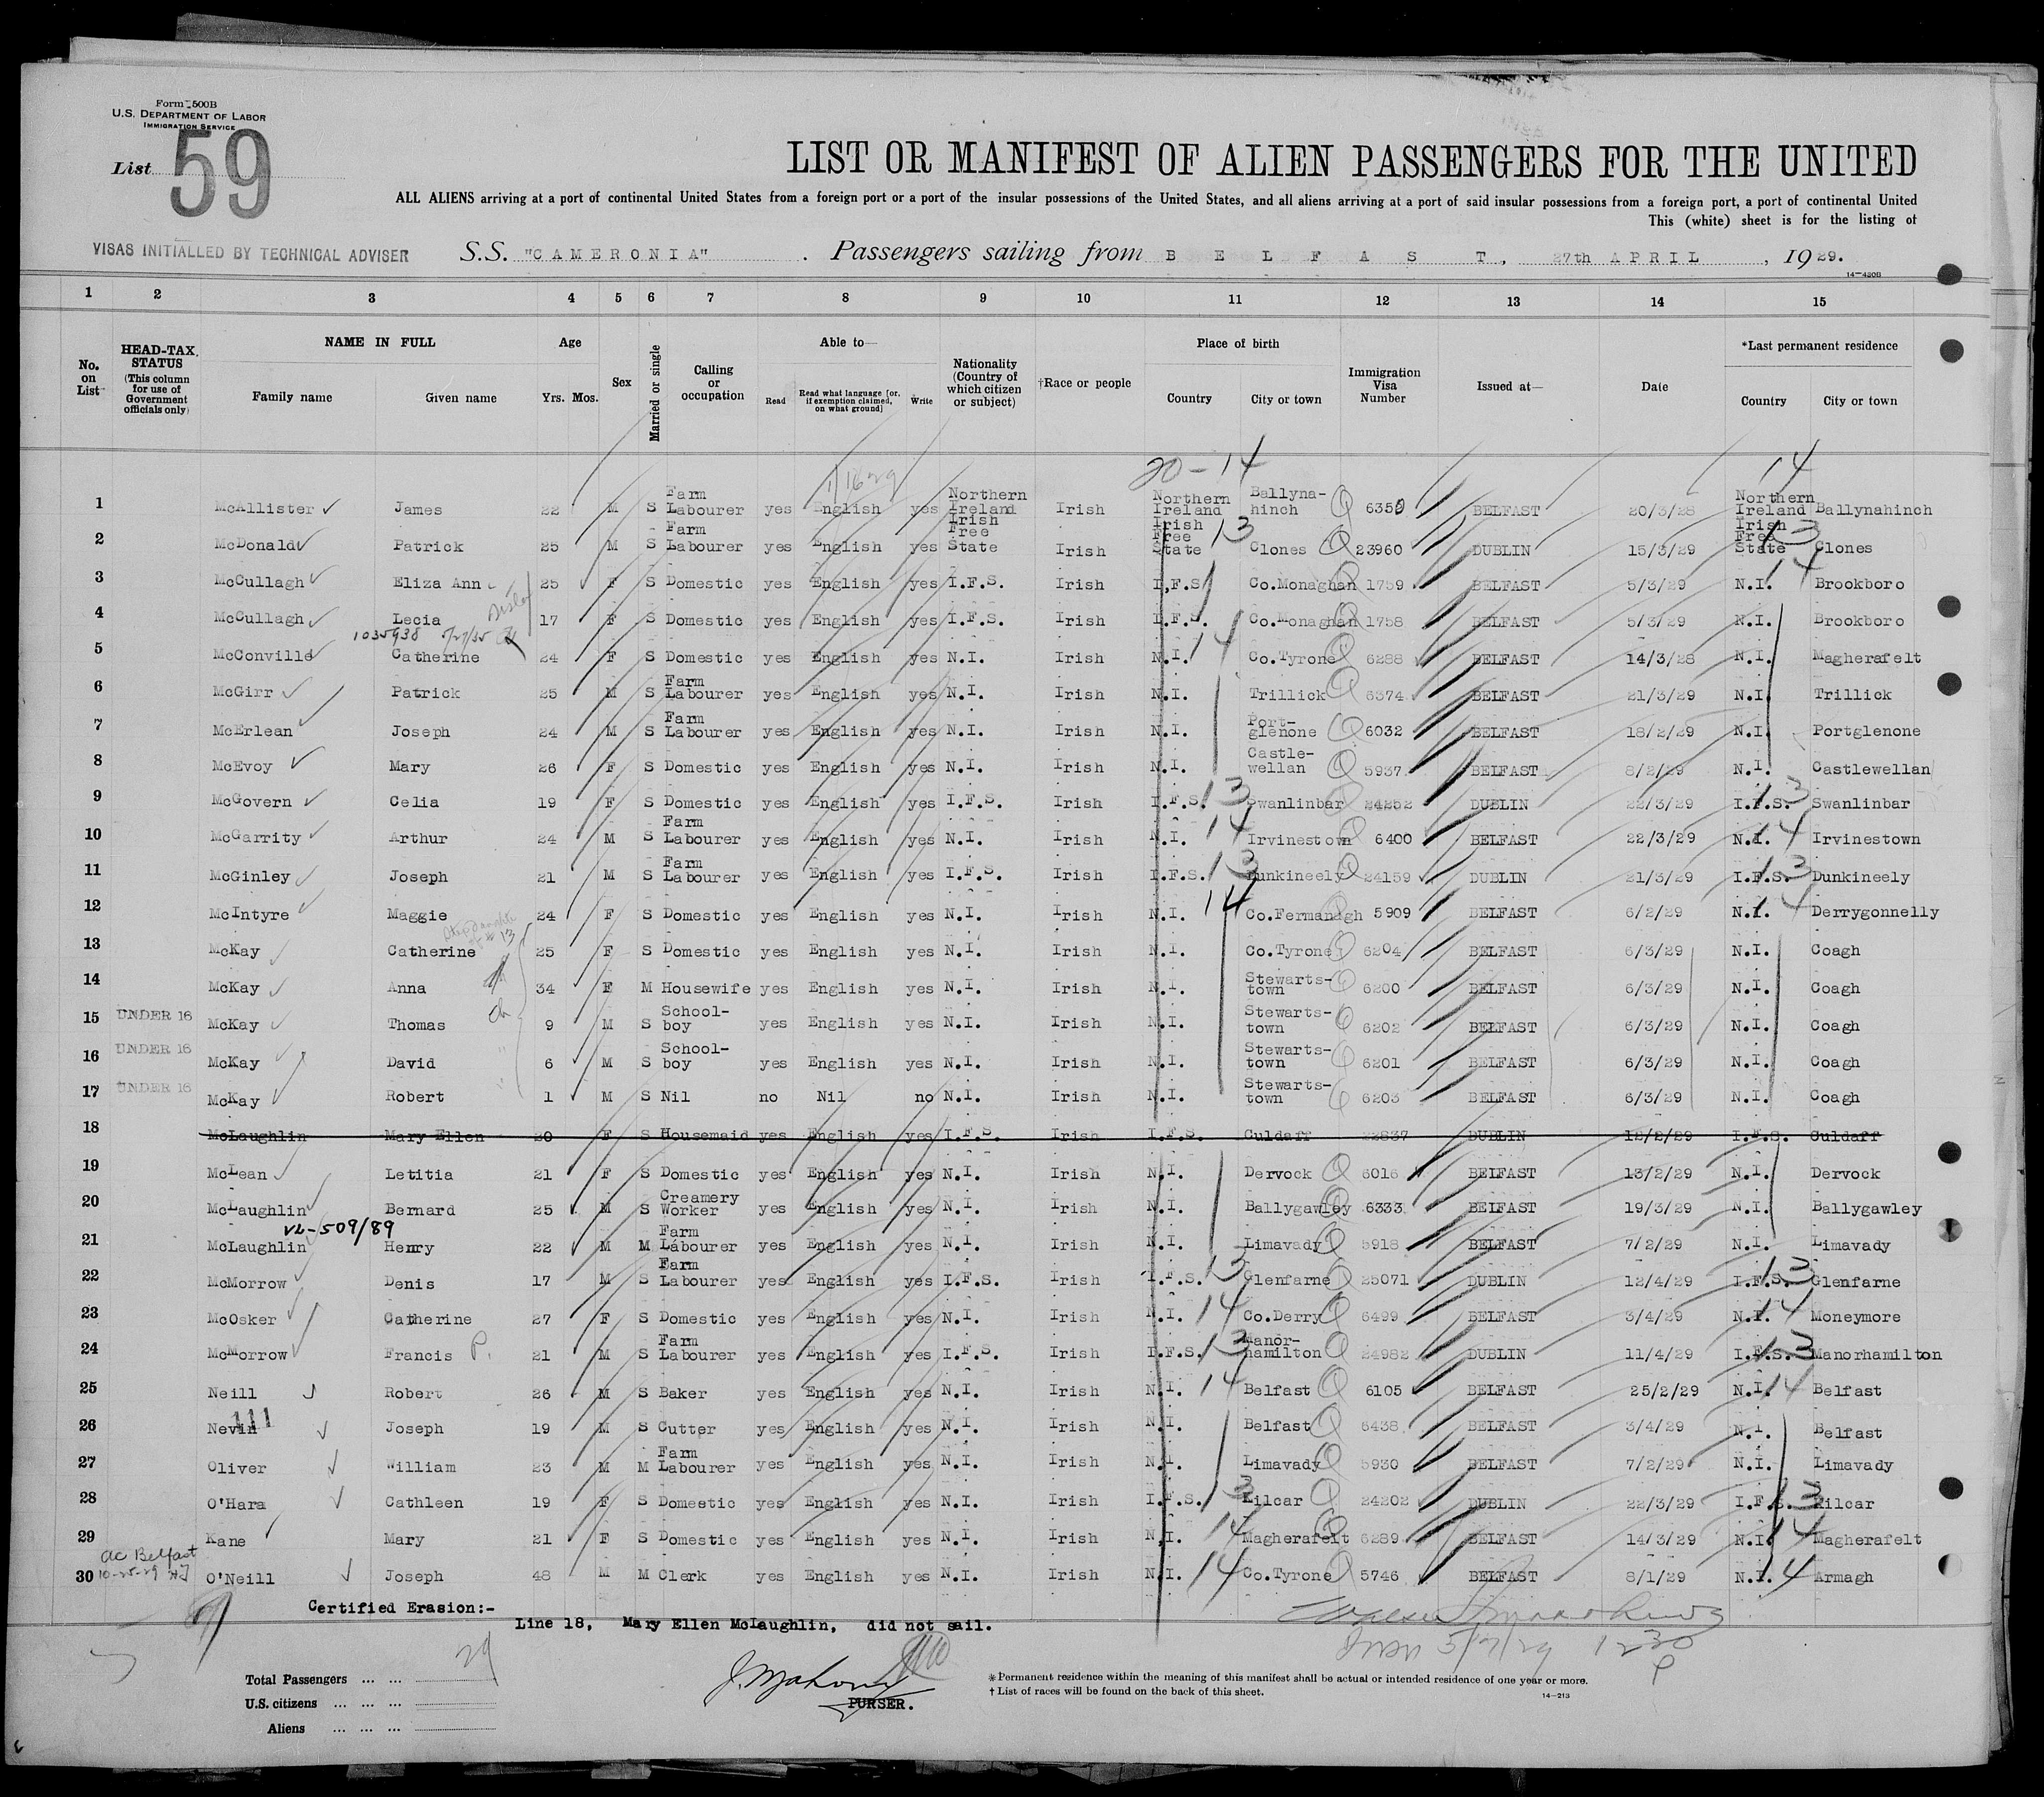 Form 500B
U.S. DEPARTMENT OF LABOR
IMMIGRATION SERVICE
List 59
LIST OR MANIFEST OF ALIEN PASSENGERS FOR THE UNITED
ALL ALIENS arriving at a port of continental United States from a foreign port or a port of the insular possessions of the United States, and all aliens arriving at a port of said insular possessions from a foreign port, a port of continental United
This (white) sheet is for the listing of
VISAS INITIALLED BY TECHNICAL ADVISER S.S. "CAMERONIA" . Passengers sailing from BELFAST, 27th APRIL , 1929.
14-430B
1 2 3 4 5 6 7 8 9 10 11 12 13 14 15
No. on List HEAD-TAX STATUS (This column for use of Government officials only) NAME IN FULL Family name Given name Age Yrs. Mos. Sex Married or single Calling or occupation Able to— Read Read what language [or, if exemption claimed, on what ground] Write Nationality (Country of which citizen or subject) †Race or people Place of birth Country City or town Immigration Visa Number Issued at— Date *Last permanent residence Country City or town
20-14 14
1 McAllister James 22 M S Farm Labourer yes English yes Northern Ireland Irish Northern Ireland Ballyna-hinch 6350 BELFAST 20/3/28 Northern Ireland Ballynahinch
2 McDonald Patrick 25 M S Farm Labourer yes English yes Irish Free State Irish Irish Free State 13 Clones 23960 DUBLIN 15/3/29 Irish Free State 13 Clones
3 McCullagh Eliza Ann 25 F S Domestic yes English yes I.F.S. Irish I.F.S. Co.Monaghan 1759 BELFAST 5/3/29 N.I. 14 Brookboro
4 McCullagh Lecia 17 F S Domestic yes English yes I.F.S. Irish I.F.S. Co.Monaghan 1758 BELFAST 5/3/29 N.I. Brookboro
1035938 5/27/35
5 McConville Catherine 24 F S Domestic yes English yes N.I. Irish N.I. 14 Co.Tyrone 6288 BELFAST 14/3/28 N.I. Magherafelt
6 McGirr Patrick 25 M S Farm Labourer yes English yes N.I. Irish N.I. Trillick 6374 BELFAST 21/3/29 N.I. Trillick
7 McErlean Joseph 24 M S Farm Labourer yes English yes N.I. Irish N.I. Port-glenone 6032 BELFAST 18/2/29 N.I. Portglenone
8 McEvoy Mary 26 F S Domestic yes English yes N.I. Irish N.I. Castle-wellan 5937 BELFAST 8/2/29 N.I. Castlewellan
9 McGovern Celia 19 F S Domestic yes English yes I.F.S. Irish I.F.S. 13 Swanlinbar 24252 DUBLIN 22/3/29 I.F.S. 13 Swanlinbar
10 McGarrity Arthur 24 M S Farm Labourer yes English yes N.I. Irish N.I. 14 Irvinestown 6400 BELFAST 22/3/29 N.I. 14 Irvinestown
11 McGinley Joseph 21 M S Farm Labourer yes English yes I.F.S. Irish I.F.S. 13 Dunkineely 24159 DUBLIN 21/3/29 I.F.S. 13 Dunkineely
12 McIntyre Maggie 24 F S Domestic yes English yes N.I. Irish N.I. 14 Co.Fermanagh 5909 BELFAST 6/2/29 N.I. 14 Derrygonnelly
13 McKay Catherine 25 F S Domestic yes English yes N.I. Irish N.I. Co.Tyrone 6204 BELFAST 6/3/29 N.I. Coagh
14 McKay Anna 34 F M Housewife yes English yes N.I. Irish N.I. Stewarts-town 6200 BELFAST 6/3/29 N.I. Coagh
15 UNDER 16 McKay Thomas 9 M S School-boy yes English yes N.I. Irish N.I. Stewarts-town 6202 BELFAST 6/3/29 N.I. Coagh
16 UNDER 16 McKay David 6 M S School-boy yes English yes N.I. Irish N.I. Stewarts-town 6201 BELFAST 6/3/29 N.I. Coagh
17 UNDER 16 McKay Robert 1 M S Nil no Nil no N.I. Irish N.I. Stewarts-town 6203 BELFAST 6/3/29 N.I. Coagh
18 McLaughlin Mary Ellen 20 F S Housemaid yes English yes I.F.S. Irish I.F.S. Culdaff 22837 DUBLIN 12/2/29 I.F.S. Culdaff
19 McLean Letitia 21 F S Domestic yes English yes N.I. Irish N.I. Dervock 6016 BELFAST 13/2/29 N.I. Dervock
20 McLaughlin Bernard 25 M S Creamery Worker yes English yes N.I. Irish N.I. Ballygawley 6333 BELFAST 19/3/29 N.I. Ballygawley
VL-509/89
21 McLaughlin Henry 22 M M Farm Labourer yes English yes N.I. Irish N.I. Limavady 5918 BELFAST 7/2/29 N.I. Limavady
22 McMorrow Denis 17 M S Farm Labourer yes English yes I.F.S. Irish I.F.S. 13 Glenfarne 25071 DUBLIN 12/4/29 I.F.S. 13 Glenfarne
23 McOsker Catherine 27 F S Domestic yes English yes N.I. Irish N.I. 14 Co.Derry 6499 BELFAST 3/4/29 N.I. 14 Moneymore
24 McMorrow Francis P. 21 M S Farm Labourer yes English yes I.F.S. Irish I.F.S. 13 Manor-hamilton 24982 DUBLIN 11/4/29 I.F.S. 13 Manorhamilton
25 Neill Robert 26 M S Baker yes English yes N.I. Irish N.I. 14 Belfast 6105 BELFAST 25/2/29 N.I. 14 Belfast
26 Nevin 111 Joseph 19 M S Cutter yes English yes N.I. Irish N.I. Belfast 6438 BELFAST 3/4/29 N.I. Belfast
27 Oliver William 23 M M Farm Labourer yes English yes N.I. Irish N.I. Limavady 5930 BELFAST 7/2/29 N.I. Limavady
28 O'Hara Cathleen 19 F S Domestic yes English yes N.I. Irish I.F.S. 13 Kilcar 24202 DUBLIN 22/3/29 I.F.S. 13 Kilcar
29 Kane Mary 21 F S Domestic yes English yes N.I. Irish N.I. 14 Magherafelt 6289 BELFAST 14/3/29 N.I. 14 Magherafelt
ac Belfast
10-25-29
30 O'Neill Joseph 48 M M Clerk yes English yes N.I. Irish N.I. 14 Co.Tyrone 5746 BELFAST 8/1/29 N.I. 14 Armagh
Certified Erasion:-
Line 18, Mary Ellen McLaughlin, did not sail.
5/7/29 1230 P
Total Passengers ... ... 29
U.S. citizens ... ... ...
Aliens ... ... ...
PURSER.
* Permanent residence within the meaning of this manifest shall be actual or intended residence of one year or more.
† List of races will be found on the back of this sheet.
14-213